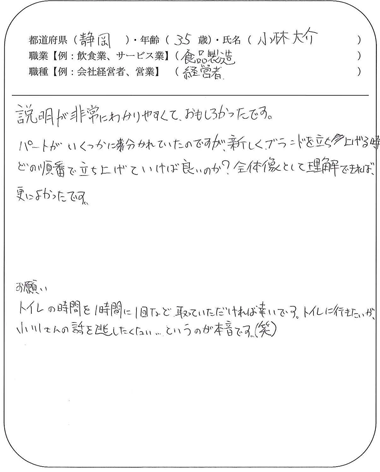 都道府県（静岡）・年齢（35歳）・氏名（小林大介）
職業【例：飲食業、サービス業】（食品製造）
職種【例：会社経営者、営業】（経営者）
説明が非常にわかりやすくて、おもしろかったです。
パートがいくつかに分かれていたのですが、新しくブランドを立ち上げる時
どの順番で立ち上げていけば良いのか？全体像として理解できれば、
更によかったです。
お願い
トイレの時間を1時間に1回など取っていただければ幸いです。トイレに行きたいが、
小川さんの話を逃したくない…というのが本音です。(笑)